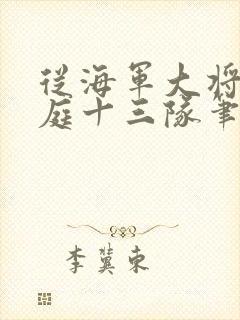 從海軍大將
庭十三隊筆
李冀東